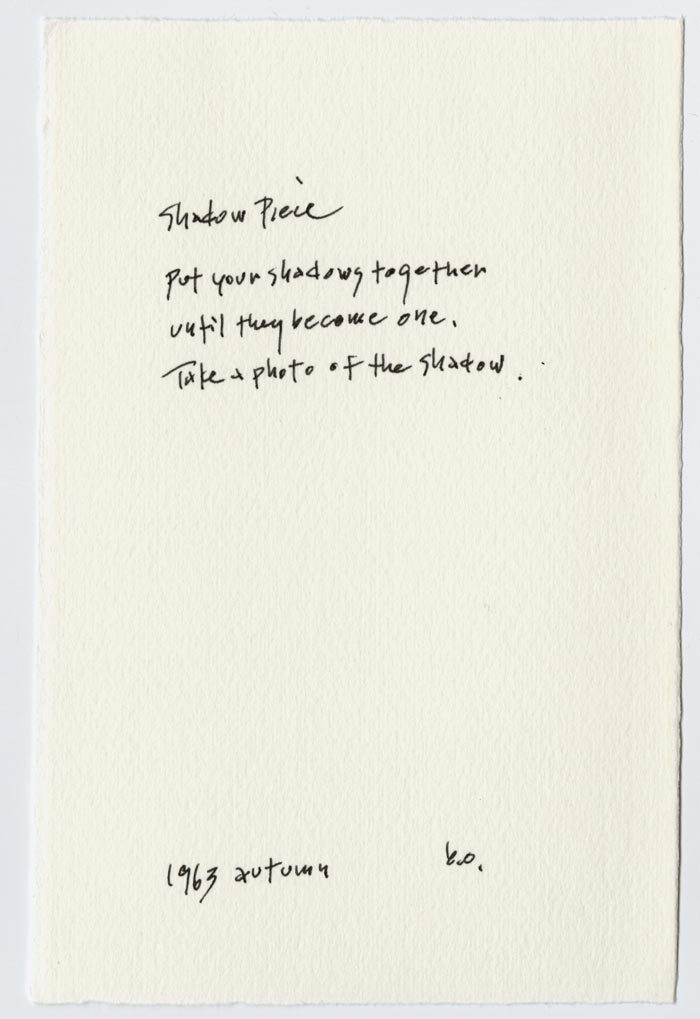 Shadow Piece
Put your shadows together
until they become one.
Take a photo of the shadow.
1963 autumn y.o.